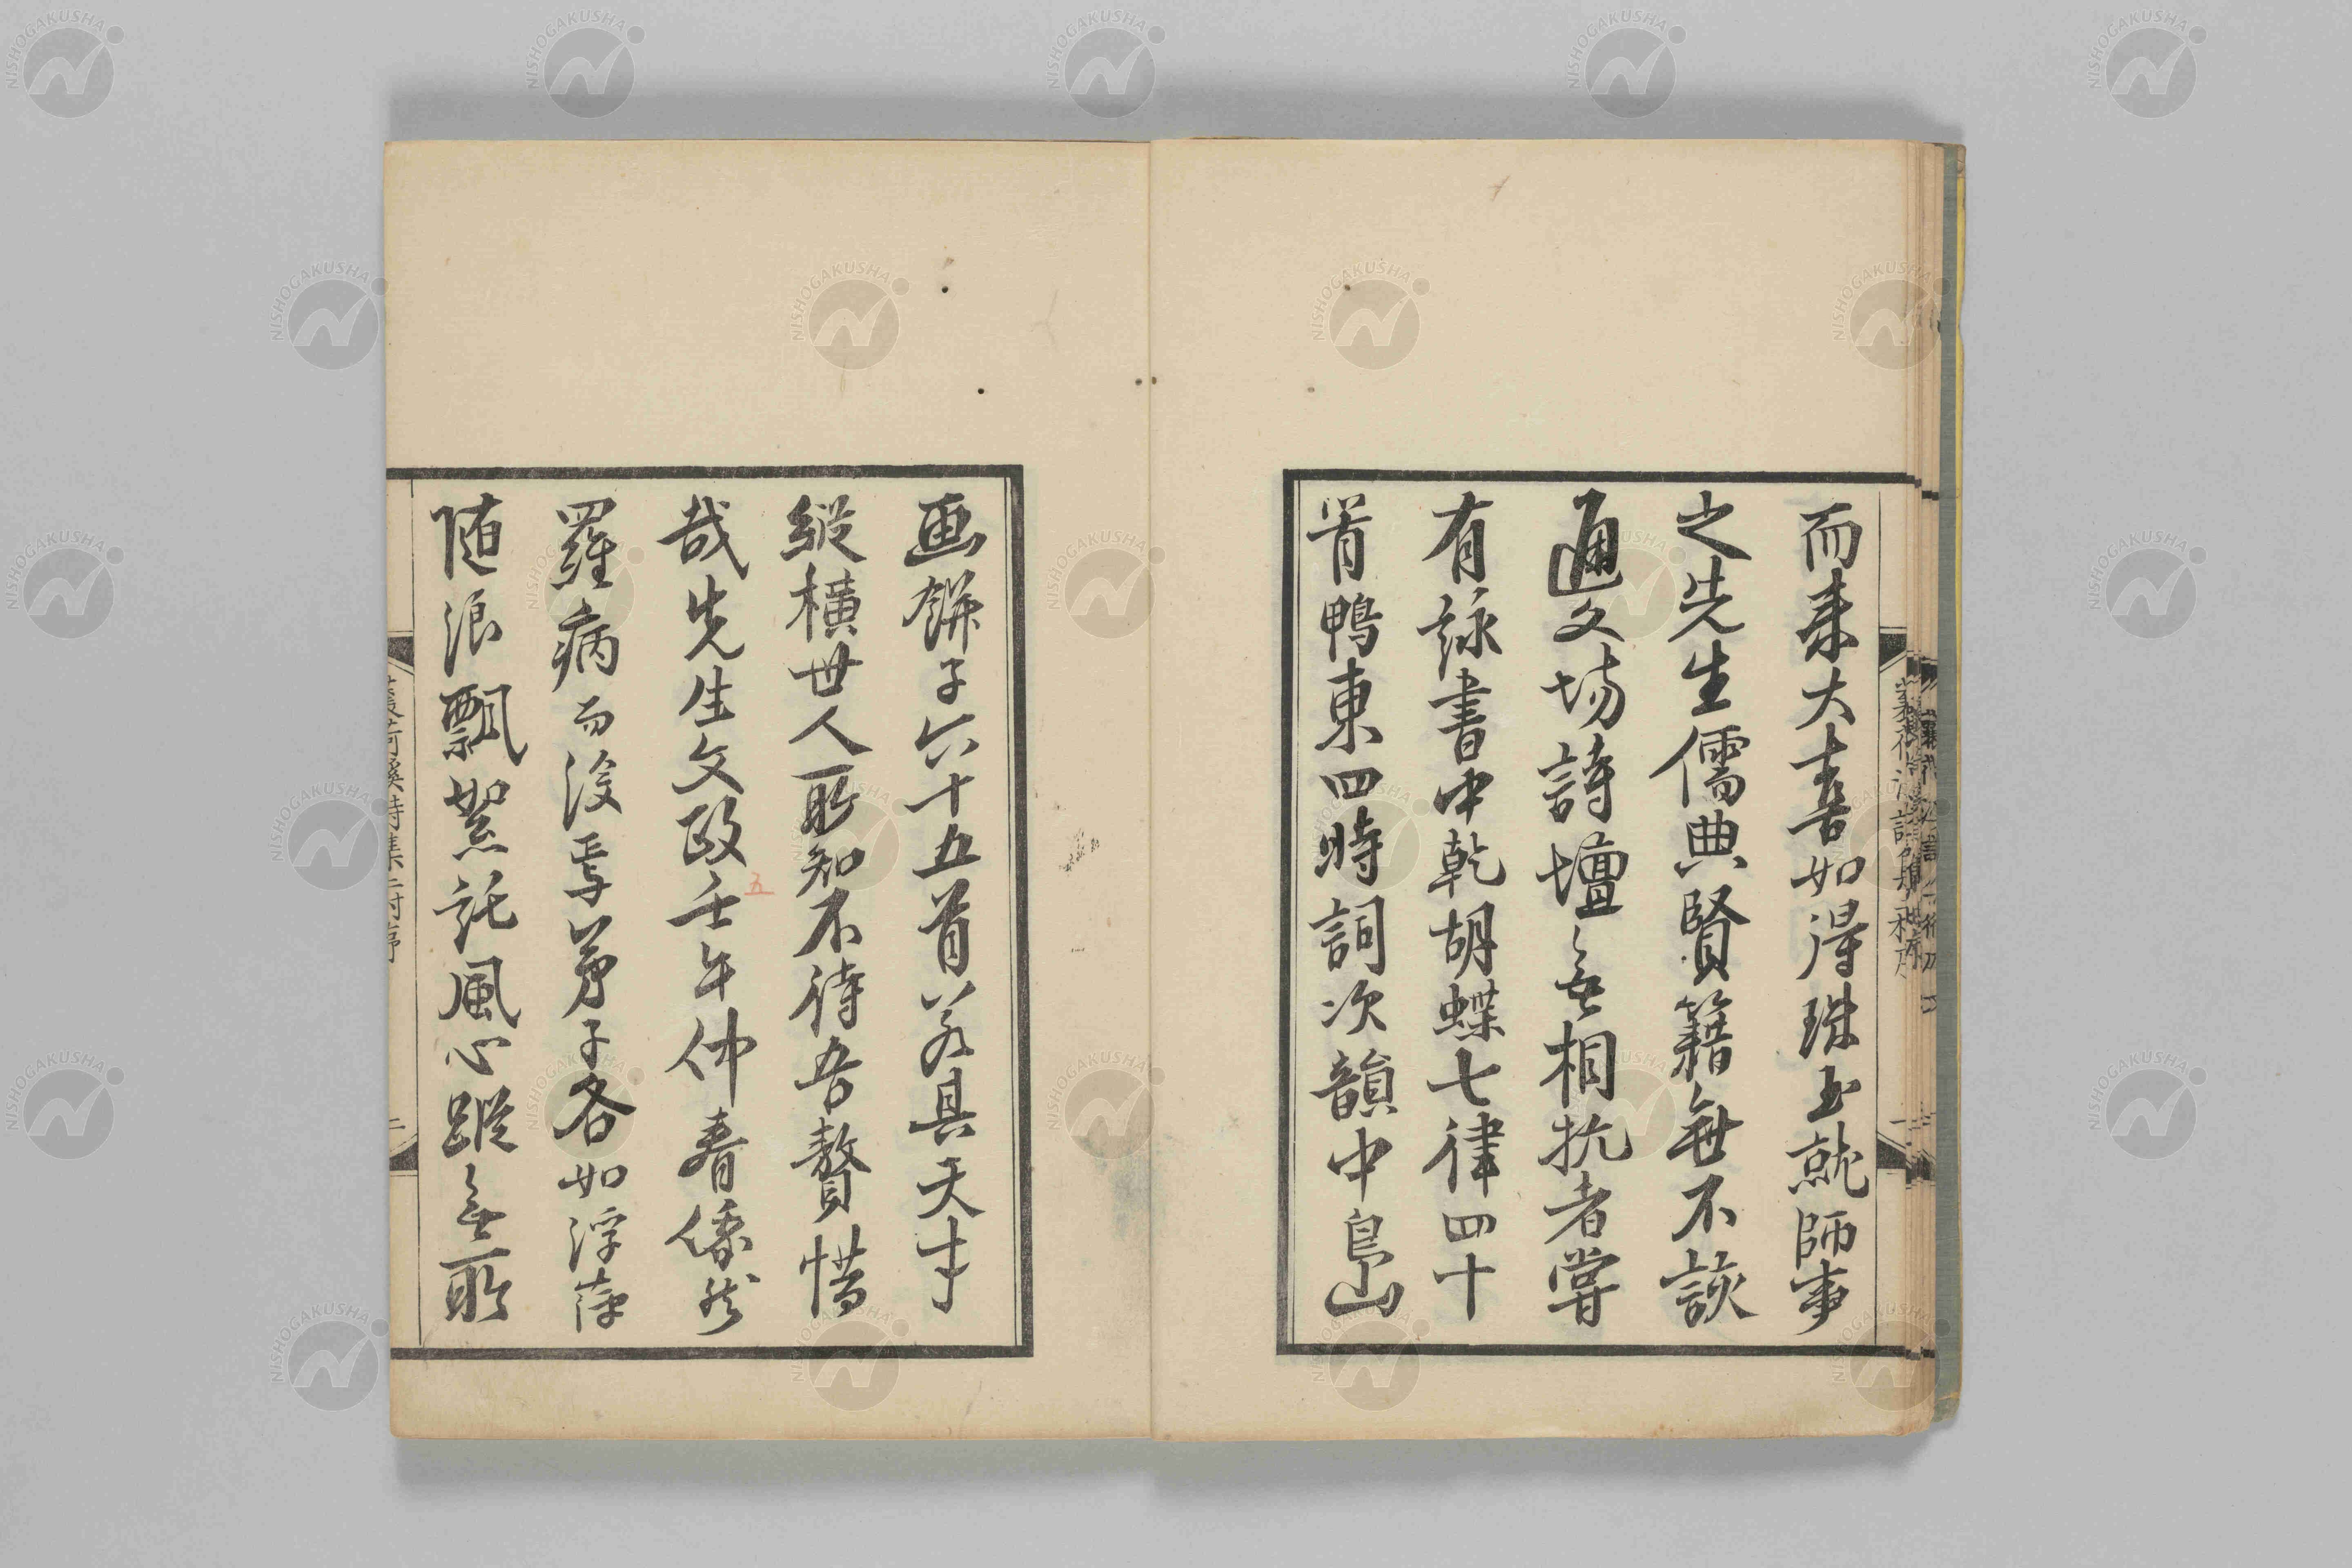 而来大喜如得珠玉就師事
之先生儒典賢籍無不談
通文場詩壇無相抗者嘗
有詠書中乾胡蝶七律四十
首鴨東四時詞次韻中島山
画餅子六十五首若具天才
縱横世人所知不待吾贅惜
哉先生文政壬午仲春倐然
五
羅病而沒焉弟子各如浮萍
随浪飄絮託風心蹤無所